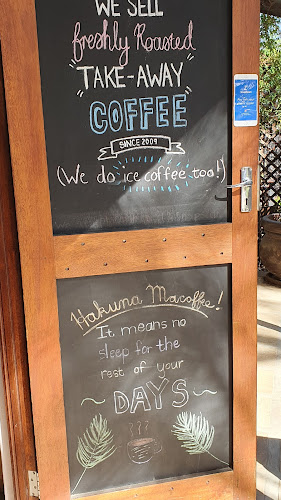 WE SELL
freshly Roasted
"TAKE-AWAY"
COFFEE
SINCE 2009
(We do ice coffee too!)
Hakuna Macoffee!
It means no
sleep for the
rest of your
DAYS